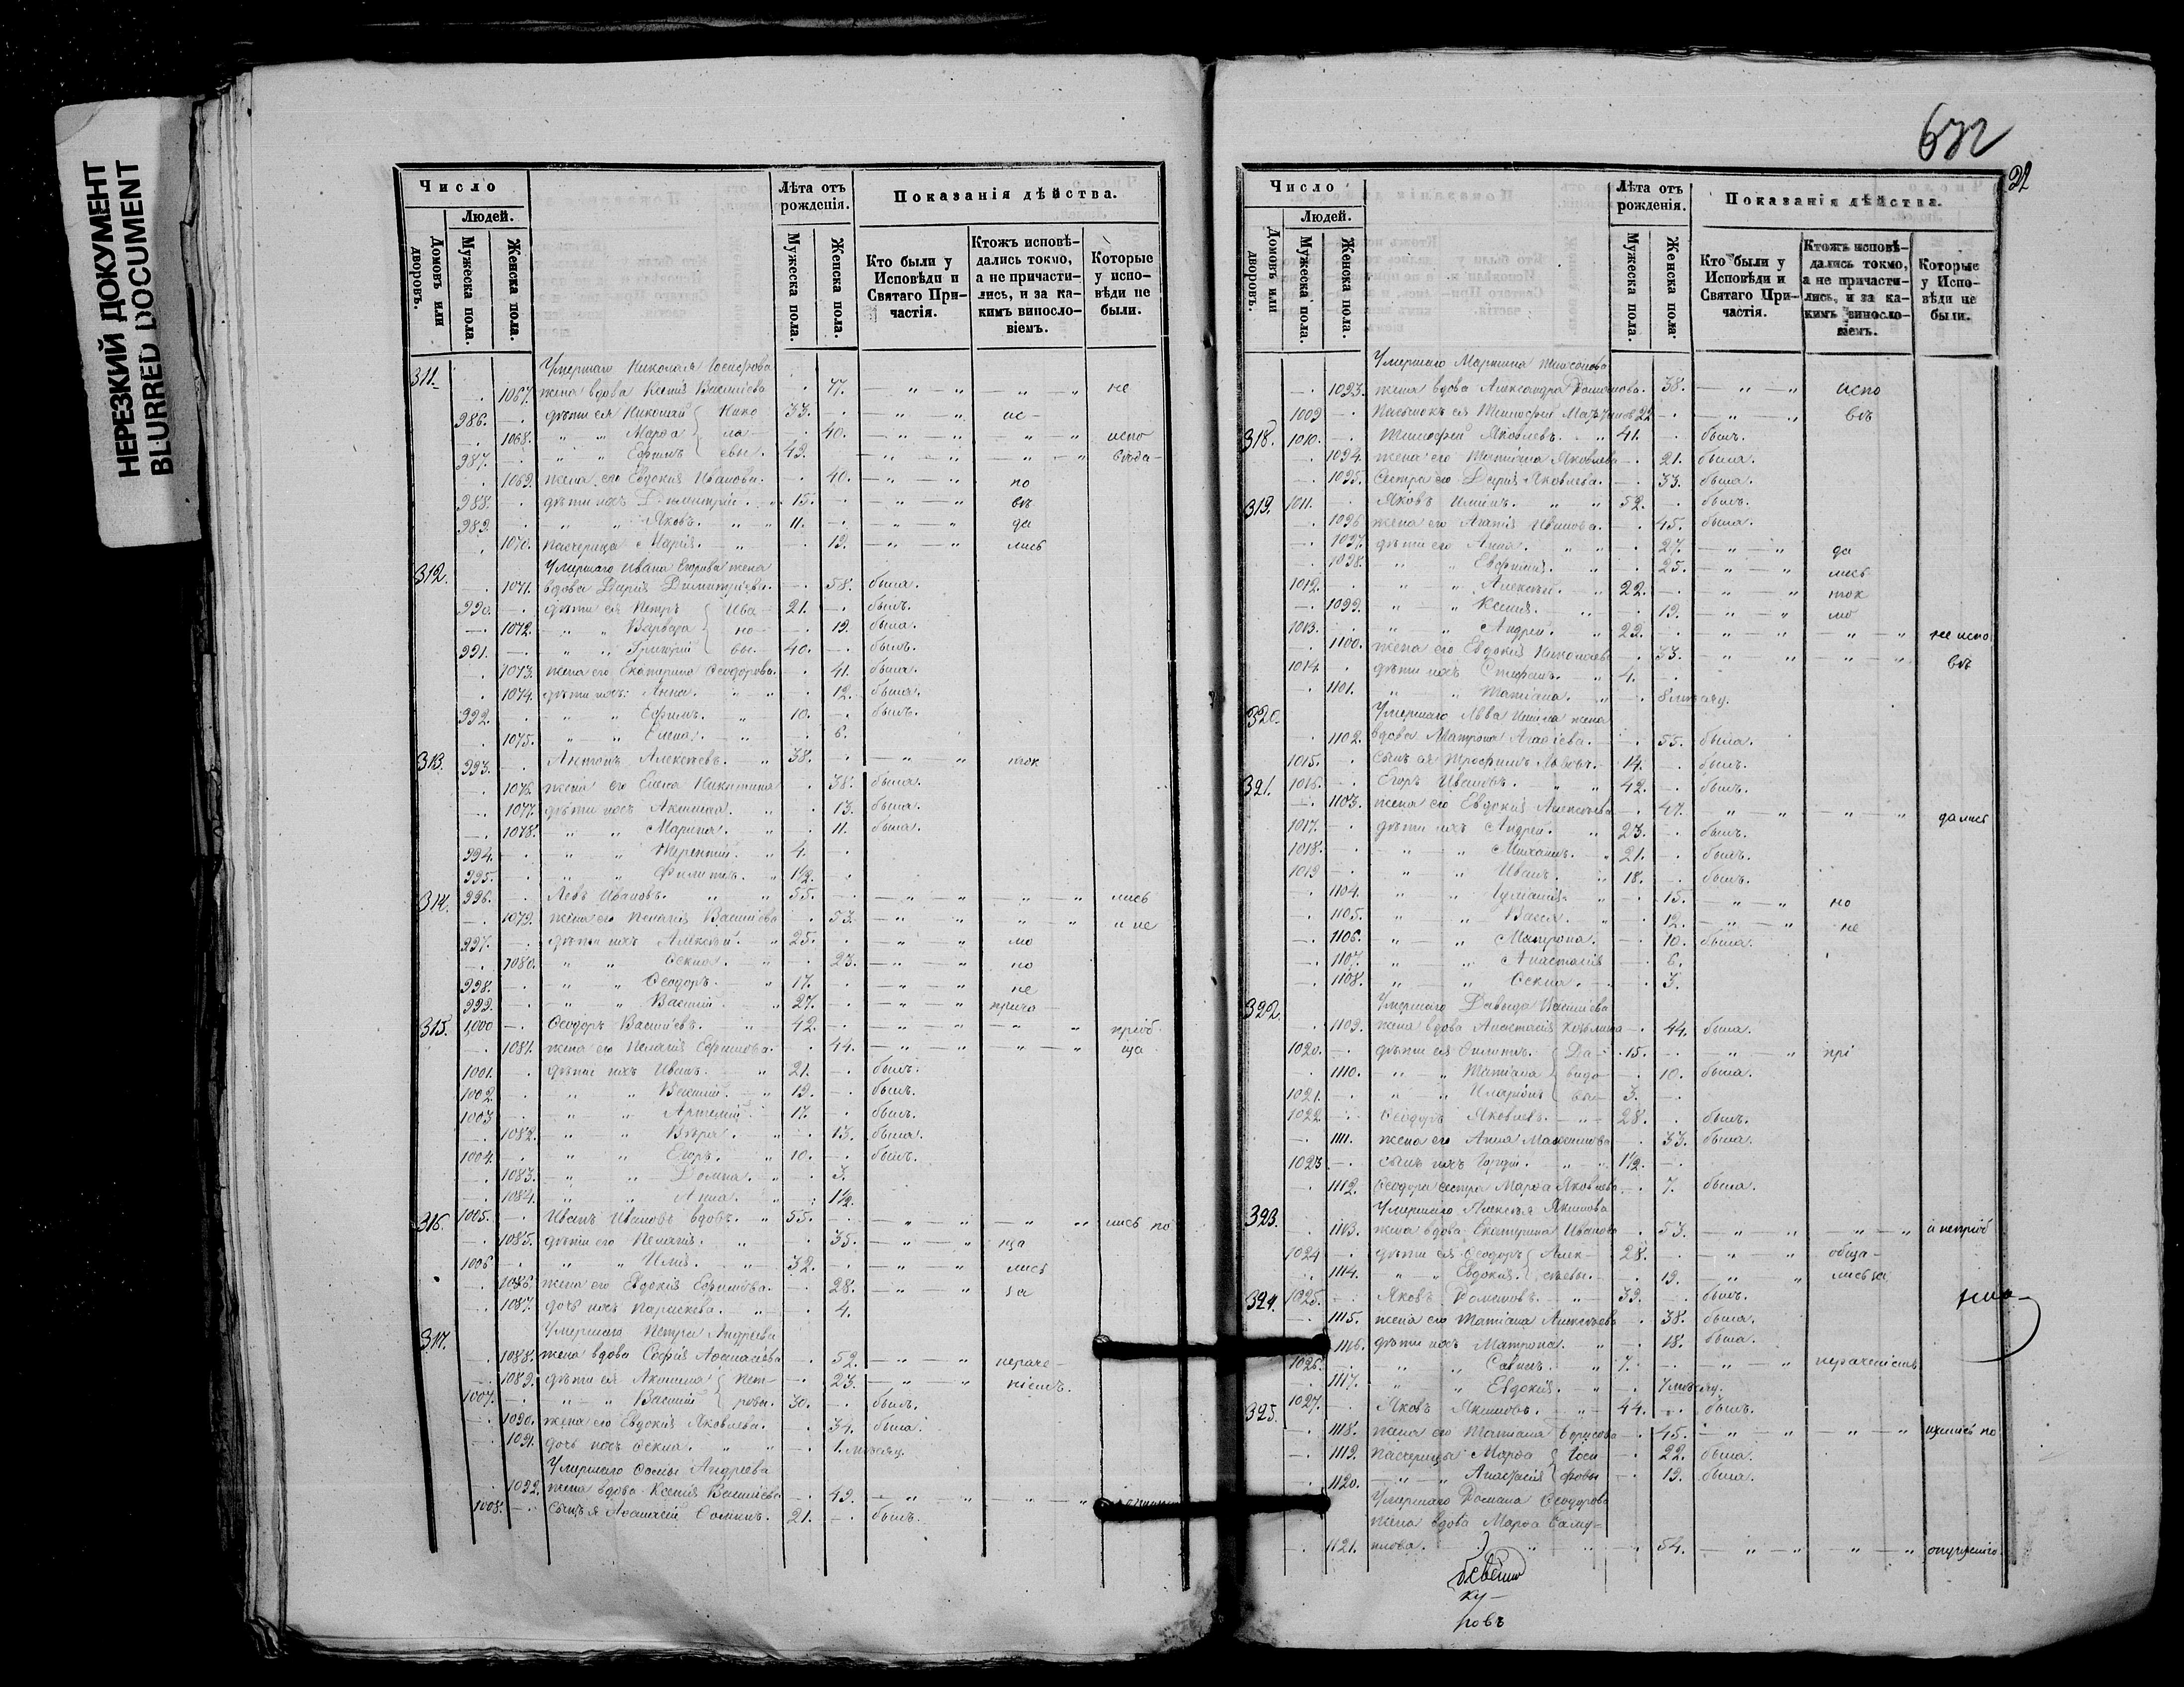 НЕРЕЗКИЙ ДОКУМЕНТ
BLURRED DOCUMENT
Число
Людей.
Домовъ или дворовъ.
Мужеска пола.
Женска пола.
Лѣта отъ рожденія.
Мужеска пола.
Женска пола.
Показанія дѣйства.
Кто были у Исповѣди и Святаго Причастія.
Ктожъ исповѣдались токмо, а не причастились, и за какимъ винословіемъ.
Которые у исповѣди не были.
311. Умершаго Николая Іосифова
1067. жена вдова Ксенія Васильева 77. — „ — „ „ — „ не
986. дѣти ея Николай Нико 33. — „ — „ ис-
1068. „ „ Марѳа ла- 40. — „ — „ — „ — „ испо
987. „ „ Ефимъ евы. 42. — „ — „ — „ — „ вѣда-
1069. жена его Евдокія Иванова. 40. — „ — „ по
988. дѣти ихъ Димитрій. 15. — „ — „ вѣ
989. „ „ Яковъ. 11. — „ — „ да
1070. падчерица Марія. 19. — „ — „ лись
312. Умершаго Ивана Егорова жена
1071. вдова Дарія Димитріева. 58. была.
990. дѣти ея Петръ Ива- 21. былъ.
1072. „ „ Варвара но- 19. была.
991. „ „ Григорій вы. 40. былъ.
1073. жена его Екатерина Ѳеодорова. 41. была.
1074. дѣти ихъ: Анна. 12. была.
992. „ „ Ефимъ. 10. былъ.
1075. „ „ Елена. 6.
313. 993. Антонъ Алексѣевъ. 38. — „ — „ ток
1076. жена его Елена Никитина 38. была.
1077. дѣти ихъ Акилина. 13. была.
1078. „ „ Марина. 11. была.
994. „ „ Терентій. 4.
995. „ „ Филиппъ. 1½.
314. 996. Левъ Ивановъ. 55. — „ — „ „ — „ лись
1079. жена его Пелагія Васильева 53. — „ „ „ и не
997. дѣти ихъ Алексѣй. 25. — „ — „ мо
1080. „ „ Ѳекла. 23. — „ — „ но
998. „ „ Ѳеодоръ. 17. — „ — „ не
999. „ „ Василій. 27. — „ — „ прича-
315. 1,000 Ѳеодоръ Васильевъ. 42. — „ — „ — „ „ пріоб
1081. жена его Пелагія Ефимова. 44. — „ — „ „ — „ ща
1001. дѣти ихъ Иванъ. 21. былъ.
1002. „ „ Василій. 19. былъ.
1003 „ „ Артемій. 17. былъ.
1082. „ „ Вѣра. 13. была.
1004. „ „ Егоръ. 10. былъ.
1083. „ „ Домна. 3.
1084. „ „ Анна. 1½.
316. 1005. Иванъ Ивановъ вдовъ. 55. — „ — „ — „ „ лись по
1085. дѣти его Пелагія. 35. — „ — „ ща
1006 „ „ Илія. 32. — „ — „ лись
1086. жена его Евдокія Ефимова. 28. — „ — „ за
1087. дочь ихъ Параскева. 4.
317. Умершаго Петра Андреева
1088. жена вдова Софія Аѳанасіева 52. — „ — „ нераче-
1089. дѣти ея Акилина Пет- 23. — „ — „ ніемъ.
1007. „ „ Василій ровы. 30. былъ.
1090. жена его Евдокія Яковлева. 34. была.
1091. дочь ихъ Ѳекла. 1. мѣсяц.
Умершаго Ѳомы Андреева
1092. жена вдова Ксенія Васильева 49. — „ „ — „
1008. сынъ ея Аѳанасій Ѳоминъ. 21. былъ.
22
Число
Людей.
Домовъ или дворовъ.
Мужеска пола.
Женска пола.
Лѣта отъ рожденія.
Мужеска пола.
Женска пола.
Показанія дѣйства.
Кто были у Исповѣди и Святаго Причастія.
Ктожъ исповѣдались токмо, а не причастились, и за какимъ винословіемъ.
Которые у Исповѣди не были.
Умершаго Мартина
1093. жена вдова Александра 38. — „ — „ испо
1009 Пасынокъ ея Тимофей 22 — „ „ вѣ
318. 1010. Тимофей Яковлевъ. 41. былъ.
1094. жена его Татіана Яковлева 21. была.
1095. Сестра его Дарія Яковлева. 33. была.
319. 1011. Яковъ Ильинъ. 52. былъ.
1096 жена его Агаѳія Иванова. 45. была.
1097. дѣти его Анна. 27. — „ — „ да
1098. „ „ Евфимія. 25. — „ „ лись
1012. „ „ Алексѣй. 22. — „ „ ток
1099. „ „ Ксенія. 19. — „ „ мо
1013. „ „ Андрей. 22. — „ — „ — „ — „ не испо
1100. жена его Евдокія Николаева 33. — „ „ — „ — „ вѣ
1014. дѣти ихъ Стефанъ. 4.
1101. „ „ Татіана. 8 мѣсяц.
320. Умершаго Льва Ильина жена
1102. вдова Матрона Агаѳіева. 55. была.
1015. сынъ ея Трофимъ Львовъ. 14. былъ.
321. 1016. Егоръ Ивановъ. 42. былъ.
1103. жена его Евдокія Алексѣева 47. — „ „ — „ „ дались
1017. дѣти ихъ Андрей. 23. былъ.
1018. „ „ Михаилъ. 21. былъ.
1019 „ „ Иванъ. 18. былъ.
1104. „ „ Іуліанія. 15. — „ — „ но
1105. „ „ Васса. 12. — „ — „ не
1106. „ „ Матрона. 10. была.
1107. „ „ Анастасія 6.
1108. „ „ Ѳекла. 3.
322. Умершаго Давыда
1109. жена вдова Анастасія 44. была.
1020. дѣти ея Филиппъ. Да- 15. — „ — „ прі
1110. „ „ Татіана видо- 10. была.
1021. „ „ Иларіонъ вы 3.
1022. Ѳеодоръ Яковлевъ. 28. былъ.
1111. жена его Анна Максимова 33. была.
1023 сынъ ихъ Гордій. 1½.
1112. Ѳеодора сестра Марѳа Яковлева. 7. была.
323. Умершаго Алексѣя Акимова
1113. жена вдова Екатерина Иванова 53. — „ — „ — „ — „ и непріоб
1024 дѣти ея Ѳеодоръ Алек- 28. — „ „ обща-
1114. „ „ Евдокія. сѣевы. 19. — „ „ лись за
324. 1025. Яковъ Романовъ. 39. былъ.
1115. жена его Татіана Алексѣева 38. была.
1116. дѣти ихъ Матрона. 18. была.
1026. „ „ Савинъ. 7. — „ „ нераченіемъ
1117. „ „ Евдокія. 7 мѣсяц.
325. 1027. Яковъ Акимовъ. 44. былъ.
1118. жена его Татіана Борисова 45. — „ „ — „ — „ щились по
1119. Падчерицы Марѳа Іоси 22. была.
1120. „ „ Анастасія фовы 19. была.
Умершаго Романа Ѳеодорова
жена вдова Марѳа Саму-
1121. илова. 54. — „ — „ „ — „ опущенію.